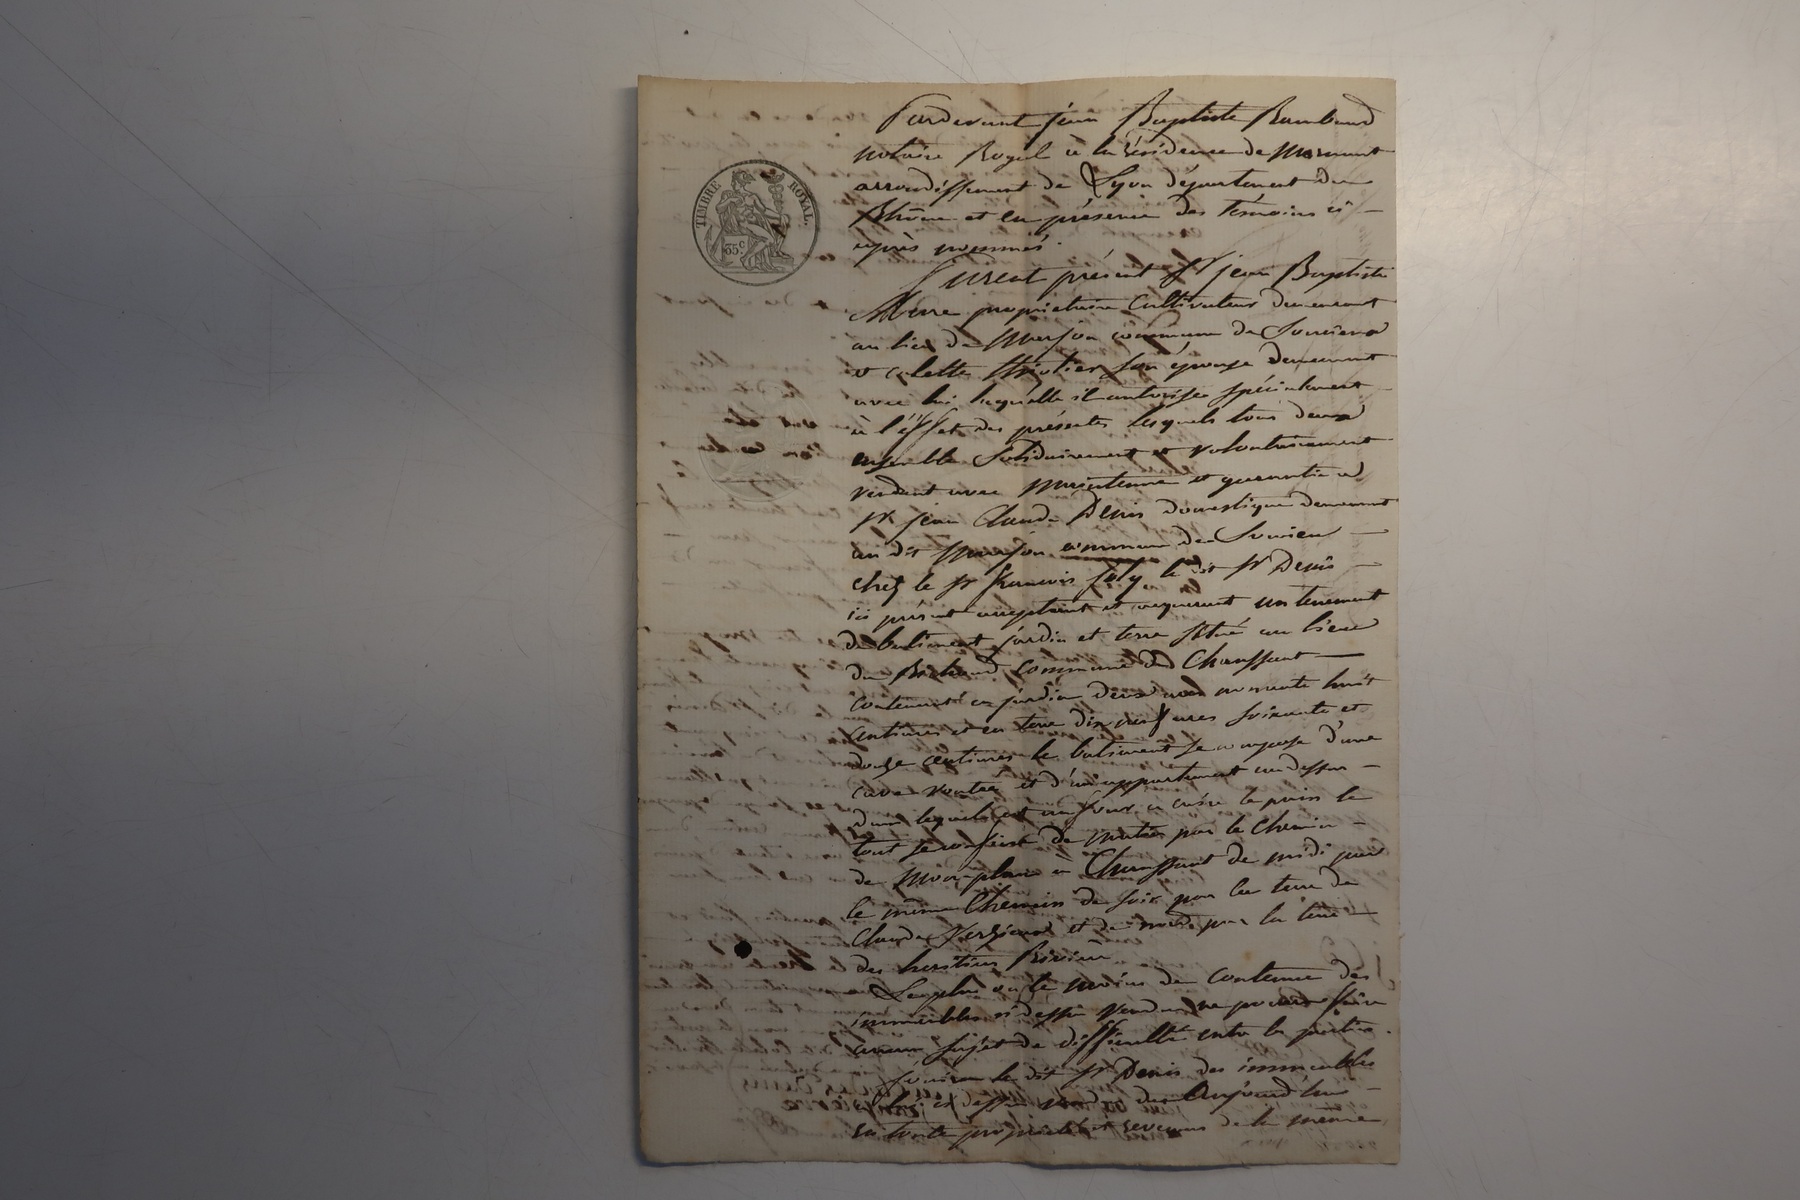 TIMBRE ROYAL.
35c
Pardevant jean Baptiste Rambaud
notaire Royal à la résidence de Mornant
arrondissement de Lyon département du
Rhône et en présence des témoins ci
après nommés.
Furent présent Sr jean Baptiste
propriétaire cultivateur demeurant
au lieu de commune de Soucieu
et colette son épouse demeurant
avec lui laquelle il autorise spécialement
à l'effet des présentes lesquels tous deux
ensemble solidairement et volontairement
vendent avec maintenue et garantie a
Sr jean Claude Denis domestique demeurant
au dit commune de Soucieu
chez le Sr francois joly le dit Sr Denis
ici présent acceptant et acquerant un tenement
de batiment jardin et terre situé au lieu
du commune de Chaussant
contenant en jardin deux ares nonante huit
centiares et en terre dix neuf ares soixante et
douze centiares le batiment se compose d'une
cave voutée et d'un appartement au dessus
dans lequel est un four a cuire le pain le
tout se confine de matin par le chemin
de à Chaussant de midi par
le même Chemin de soir par la terre de
Claude et de nord par la terre
des heritiers
Le plus ou le moins de contenue des
immeubles ci dessus vendus ne pourra faire
aucun sujet de difficulté entre les parties.
Jouira le dit Sr Denis des immeubles
ci dessus vendus dès aujourd'hui
en toute propriété et revenus de la même